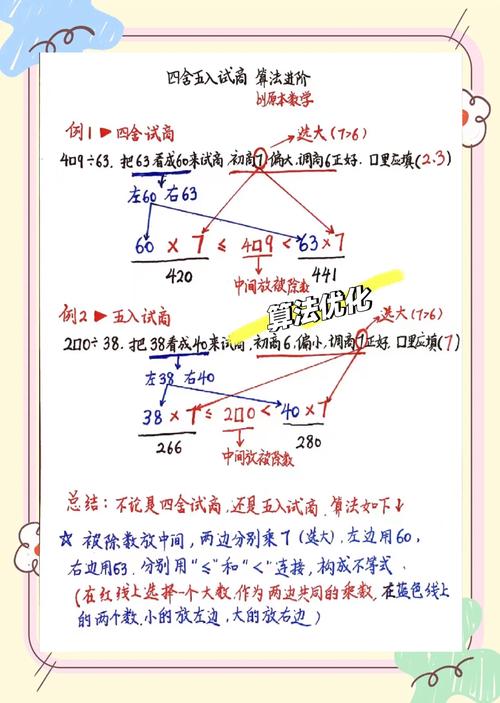 四舍五入试商 算法进阶
by原本数学
例1▶四舍试商
选大(7>6)
4口9÷63.把63看成60来试商,初商7偏大,调商6正好.口里应填(2.3)
左60 右63
60 × 7 ≤ 4口9 < 63×7
420
中间放被除数
441
算法优化
例2▶五入试商
选大(7>6)
2口0÷38.把38看成40来试商,初商6,偏小,调商7正好.口里应填(7)
左38 右40
38 × 7 ≤ 2口0 < 40 × 7
266
280
中间放被除数
总结:不论是四舍试商,还是五入试商.算法如下↓
☆ 被除数放中间,两边分别乘7(选大),左边用60,
右边用63.分别用"≤"和"<"连接,构成不等式.
(在红线上选择一个大数,作为两边共同的乘数,在蓝色线上
的两个数.小的放左边,大的放右边)